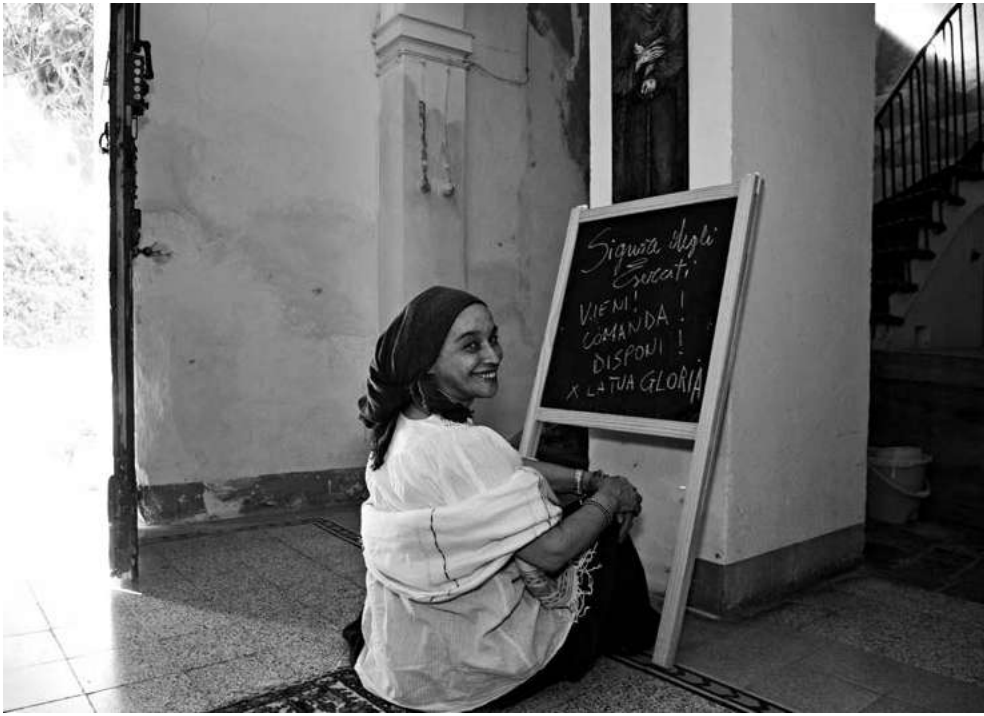 Signora degli
Eserciti
VIENI!
COMANDA!
DISPONI!
X LA TUA GLORIA